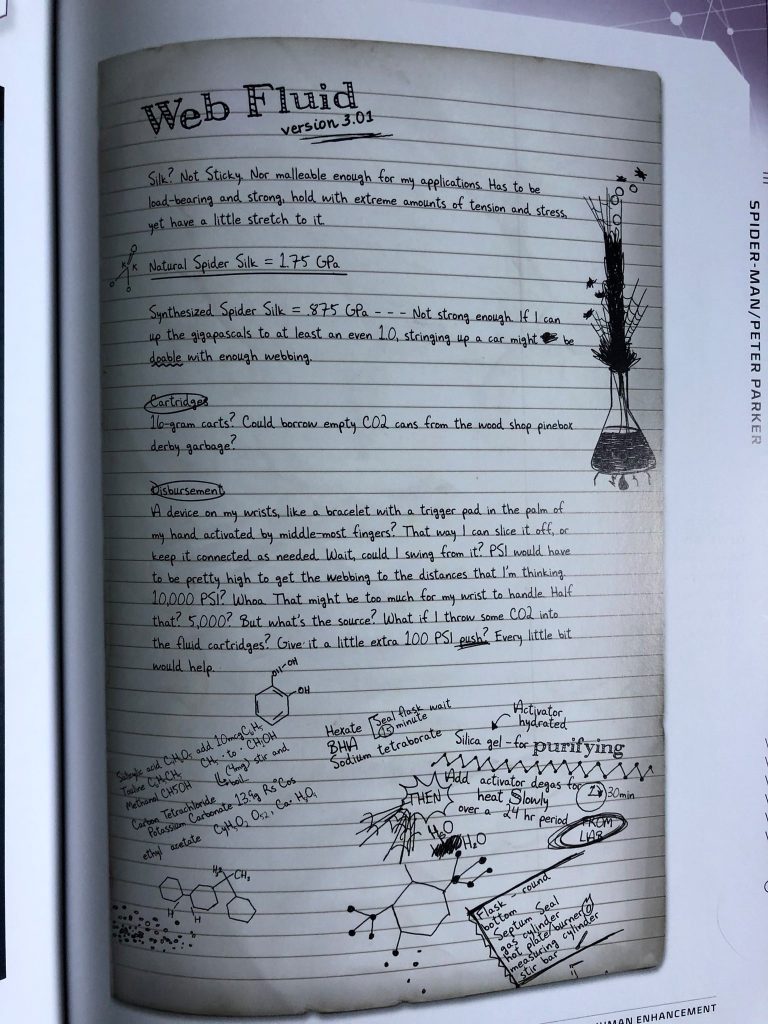 Web Fluid
version 3.01
Silk? Not Sticky. Nor malleable enough for my applications. Has to be
load-bearing and strong, hold with extreme amounts of tension and stress,
yet have a little stretch to it.
Natural Spider Silk = 1.75 GPa
Synthesized Spider Silk = .875 GPa - - - Not strong enough. If I can
up the gigapascals to at least an even 1.0, stringing up a car might be
doable with enough webbing.
Cartridges
16-gram carts? Could borrow empty CO2 cans from the wood shop pinebox
derby garbage?
Disbursement
A device on my wrists, like a bracelet with a trigger pad in the palm of
my hand activated by middle-most fingers? That way I can slice it off, or
keep it connected as needed. Wait, could I swing from it? PSI would have
to be pretty high to get the webbing to the distances that I'm thinking.
10,000 PSI? Whoa. That might be too much for my wrist to handle. Half
that? 5,000? But what's the source? What if I throw some CO2 into
the fluid cartridges? Give it a little extra 100 PSI push? Every little bit
would help.
OH
Salicylic acid add 10mcg
Methanol CH5OH (4mg) stir and
boil
Carbon Tetrachloride
Potassium Carbonate 13.5g
ethyl acetate
Hexate
BHA
Sodium tetraborate
Seal flask wait
15 minute
Activator
hydrated
Silica gel - for purifying
THEN
Add activator degas for
30min
heat Slowly
over a 24 hr period
FROM
LAB
H2O
CH3
Flask - round
bottom
Septum Seal
gas cylinder
hot plate/burner
measuring cylinder
stir bar
SPIDER-MAN/PETER PARKER
HUMAN ENHANCEMENT